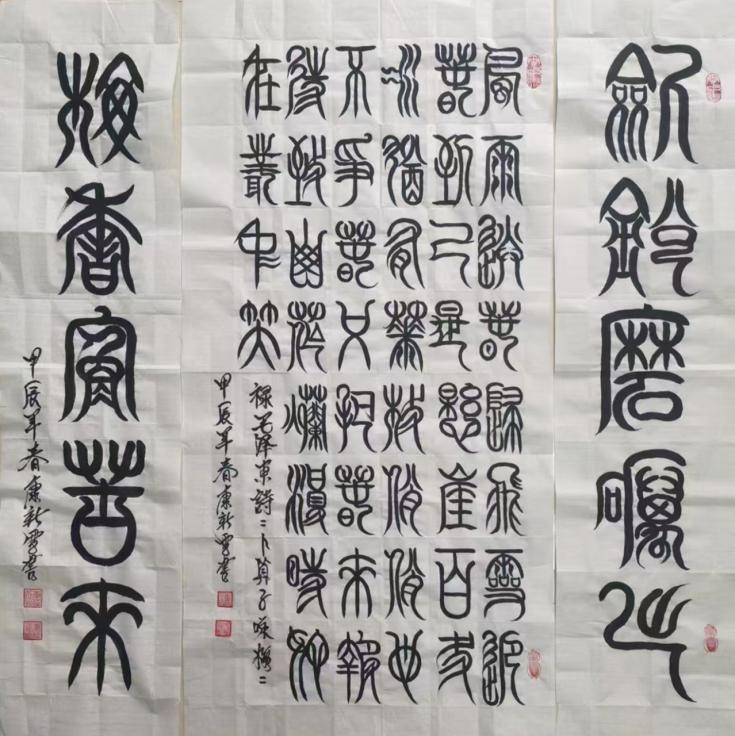 劍銳磨礪出
風雨送春歸飛雪迎
春到已是懸崖百丈
冰猶有花枝俏俏也
不爭春只把春來報
待到山花爛漫時她
在叢中笑
錄毛澤東詩〝卜算子咏梅〞
甲辰年春康新雪書
梅香寒苦來
甲辰年春康新雪書